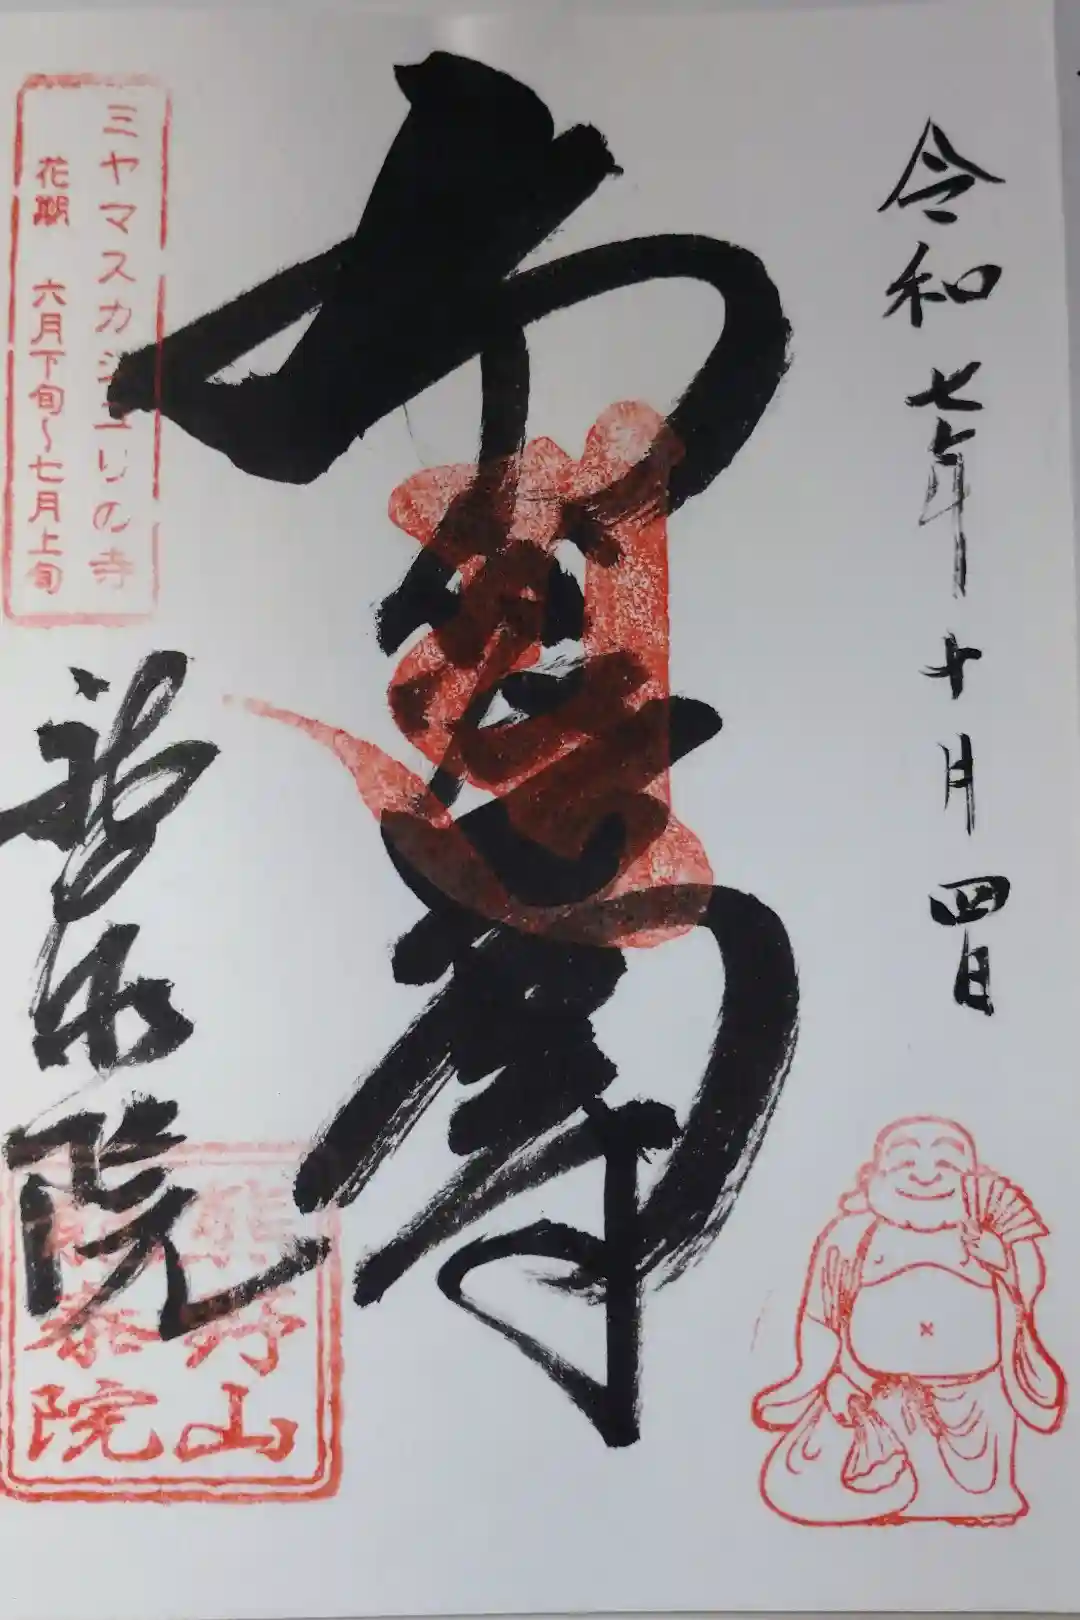 令和七年十月四日
布袋尊
ミヤマスカシユリの寺
花期 六月下旬〜七月上旬
熊野山
泰院